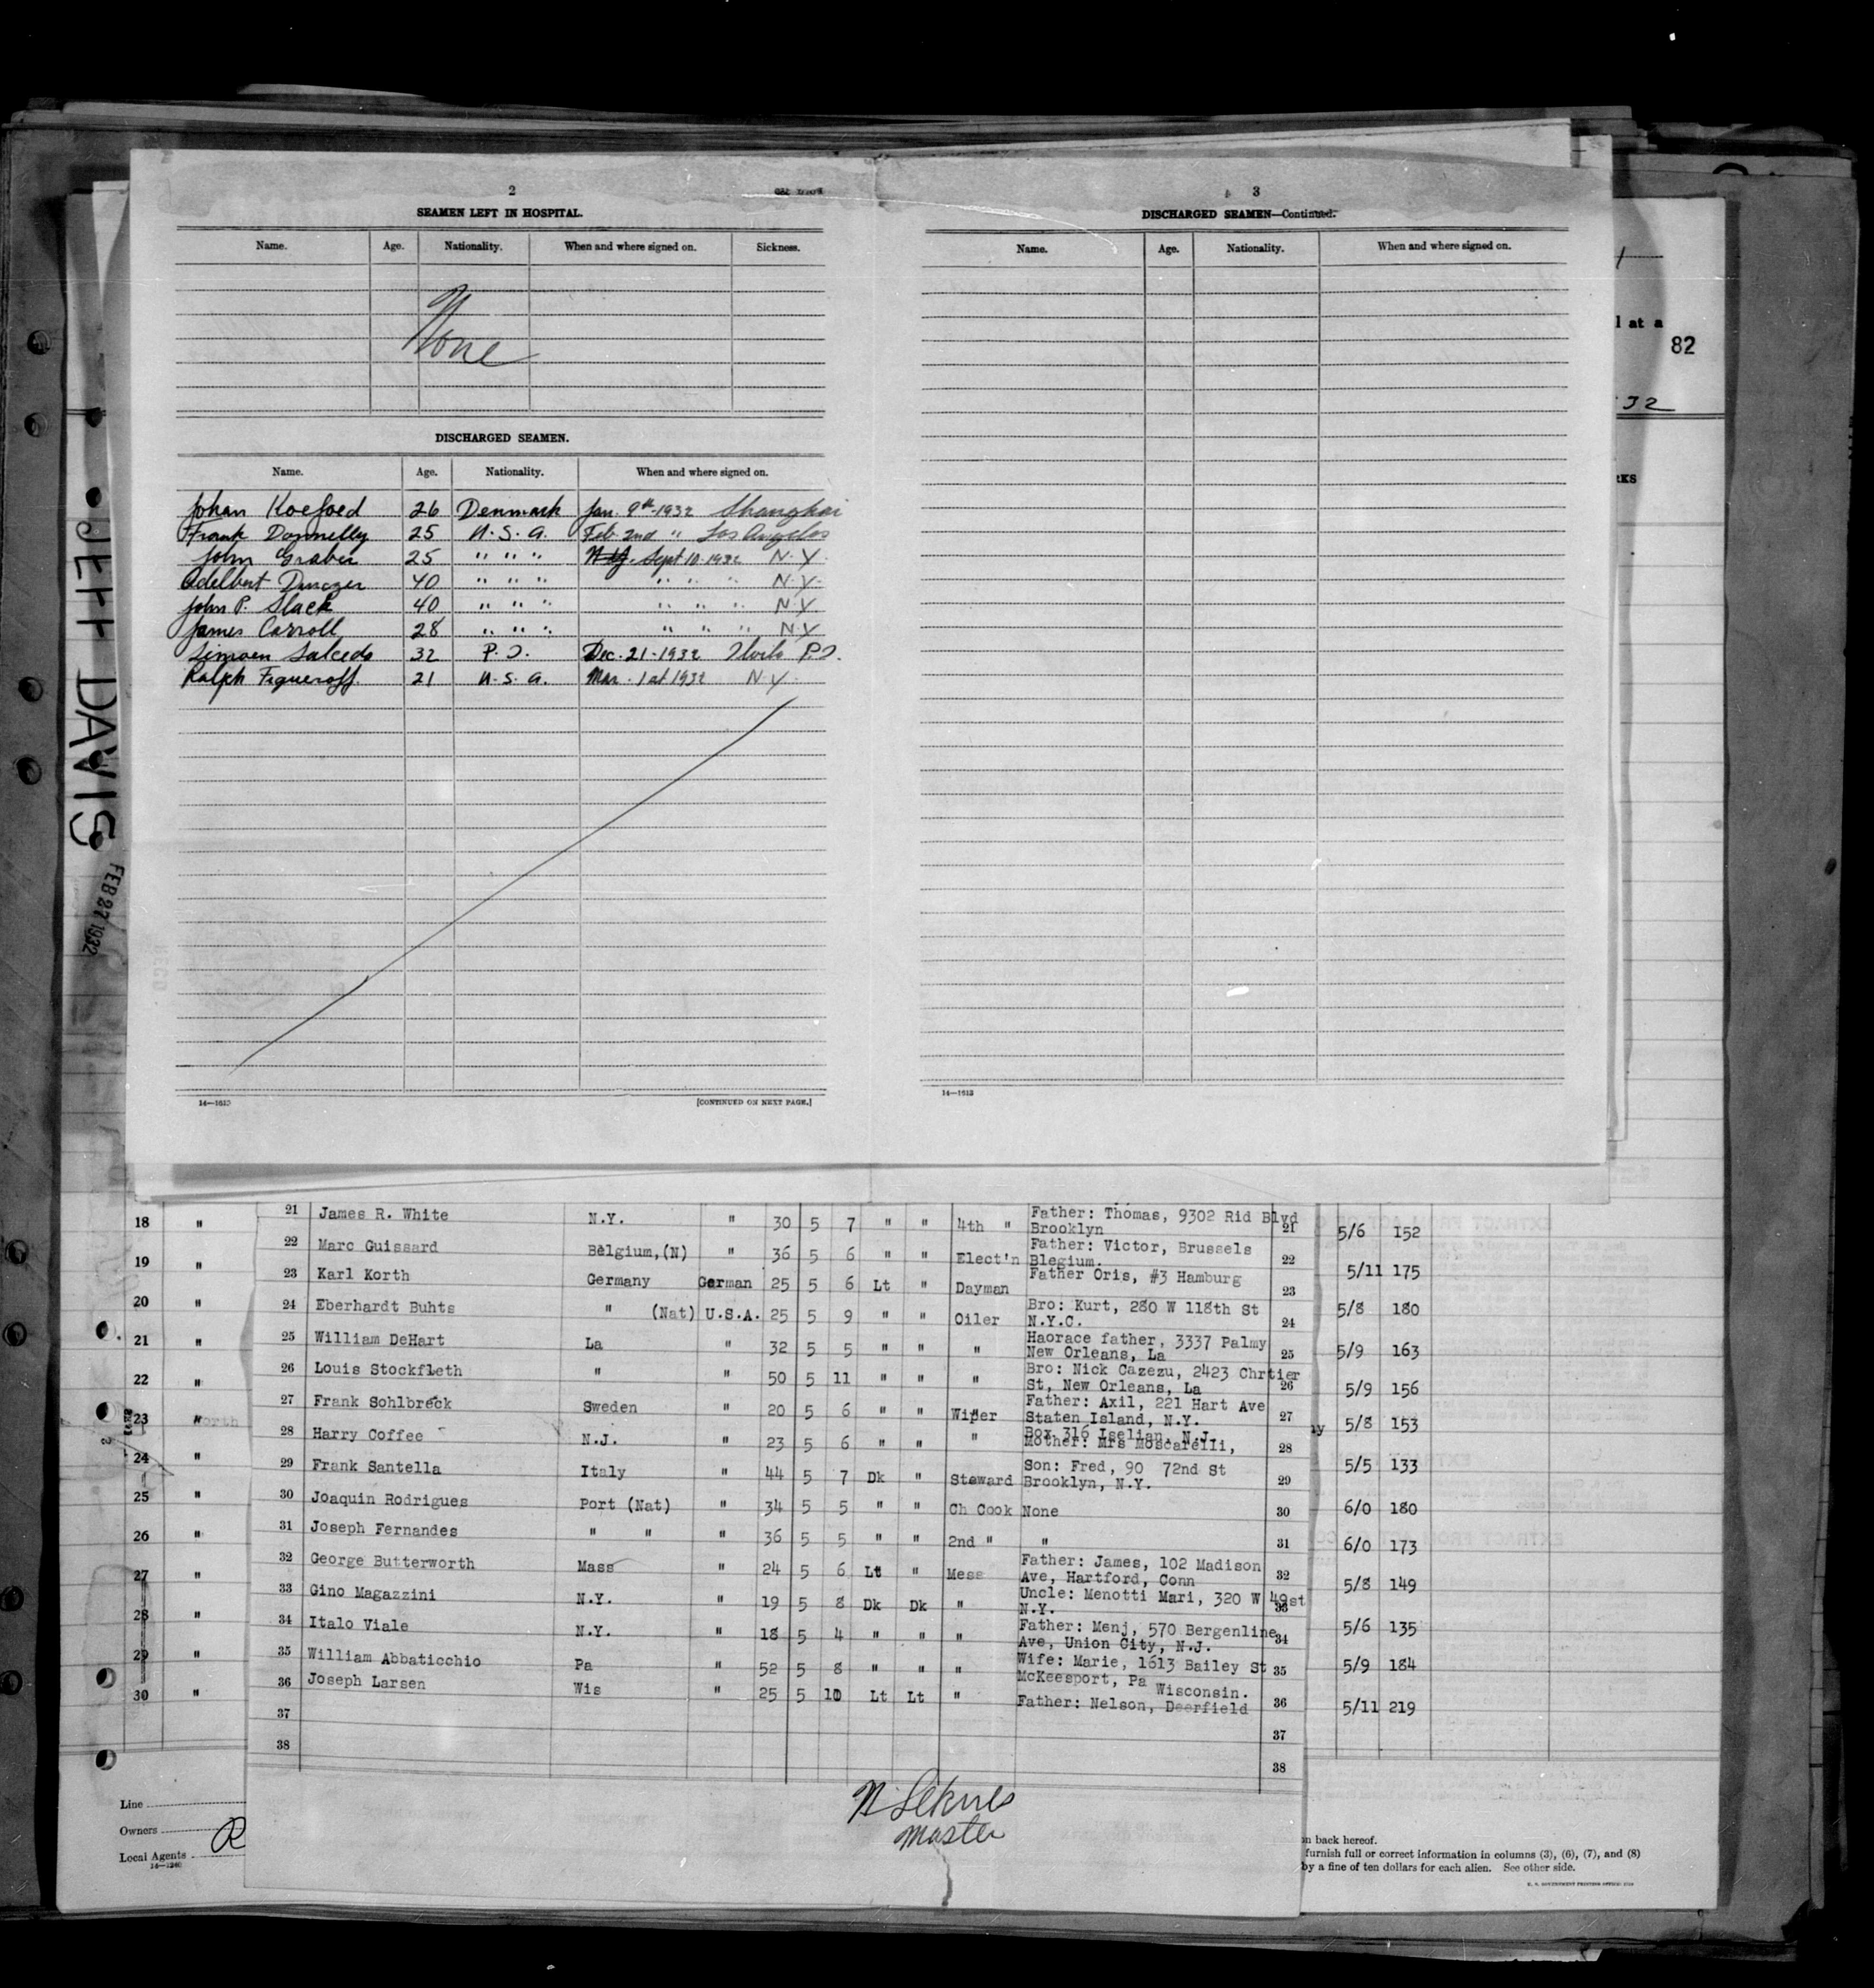 2
SEAMEN LEFT IN HOSPITAL.
Name. Age. Nationality. When and where signed on. Sickness.
None
DISCHARGED SEAMEN.
Name. Age. Nationality. When and where signed on.
Johan Koefoed 26 Denmark Jan. 9th-1932 Shanghai
Frank Donnelly 25 U.S.A. Feb. 2nd " Los Angelos
John Graber 25 " " " Sept 10-1932 N.Y.
Adelbert 40 " " " " " " N.Y.
John P. Slack 40 " " " " " " N.Y.
James Carroll 28 " " " " " " N.Y.
Simoen Salcedo 32 P.I. Dec. 21-1932 Iloilo P.I.
Ralph Figueroff. 21 U.S.A. Mar. 1st 1932 N.Y.
14—1613
[CONTINUED ON NEXT PAGE.]
3
DISCHARGED SEAMEN—Continued.
Name. Age. Nationality. When and where signed on.
14—1613
l at a
82
32
RKS
JEFF DAVIS
FEB 27 1932
18 "
19 "
20 "
21 "
22 "
23 " North
24 "
25 "
26 "
27 "
28 "
29 "
30 "
21 James R. White N.Y. " 30 5 7 " " 4th " Father: Thomas, 9302 Rid Blvd
Brooklyn 21
22 Marc Guissard Belgium,(N) " 36 5 6 " " Elect'n Father: Victor, Brussels
Blegium. 22
23 Karl Korth Germany German 25 5 6 Lt " Dayman Father Oris, #3 Hamburg 23
24 Eberhardt Buhts " (Nat) U.S.A. 25 5 9 " " Oiler Bro: Kurt, 280 W 118th St
N.Y.C. 24
25 William DeHart La " 32 5 5 " " " Haorace father, 3337 Palmy
New Orleans, La 25
26 Louis Stockfleth " " 50 5 11 " " " Bro: Nick Cazezu, 2423 Chrtier
St, New Orleans, La 26
27 Frank Sohlbreck Sweden " 20 5 6 " " Wiper Father: Axil, 221 Hart Ave
Staten Island, N.Y. 27
28 Harry Coffee N.J. " 23 5 6 " " " Box 316 Iselian, N.J.
Mother: Mrs Moscarelli, 28
29 Frank Santella Italy " 44 5 7 Dk " Steward Son: Fred, 90 72nd St
Brooklyn, N.Y. 29
30 Joaquin Rodrigues Port (Nat) " 34 5 5 " " Ch Cook None 30
31 Joseph Fernandes " " " 36 5 5 " " 2nd " " 31
32 George Butterworth Mass " 24 5 6 Lt " Mess Father: James, 102 Madison
Ave, Hartford, Conn 32
33 Gino Magazzini N.Y. " 19 5 8 Dk Dk " Uncle: Menotti Mari, 320 W 49st
N.Y. 33
34 Italo Viale N.Y. " 18 5 4 " " " Father: Menj, 570 Bergenline
Ave, Union City, N.J. 34
35 William Abbaticchio Pa " 52 5 8 " " " Wife: Marie, 1613 Bailey St
McKeesport, Pa 35
36 Joseph Larsen Wis " 25 5 10 Lt Lt " Wisconsin.
Father: Nelson, Deerfield 36
37 37
38 38
5/6 152
5/11 175
5/8 180
5/9 163
5/9 156
5/8 153
5/5 133
6/0 180
6/0 173
5/8 149
5/6 135
5/9 184
5/11 219
Master
Line
Owners R
Local Agents
14—1240
n back hereof.
furnish full or correct information in columns (3), (6), (7), and (8)
by a fine of ten dollars for each alien. See other side.